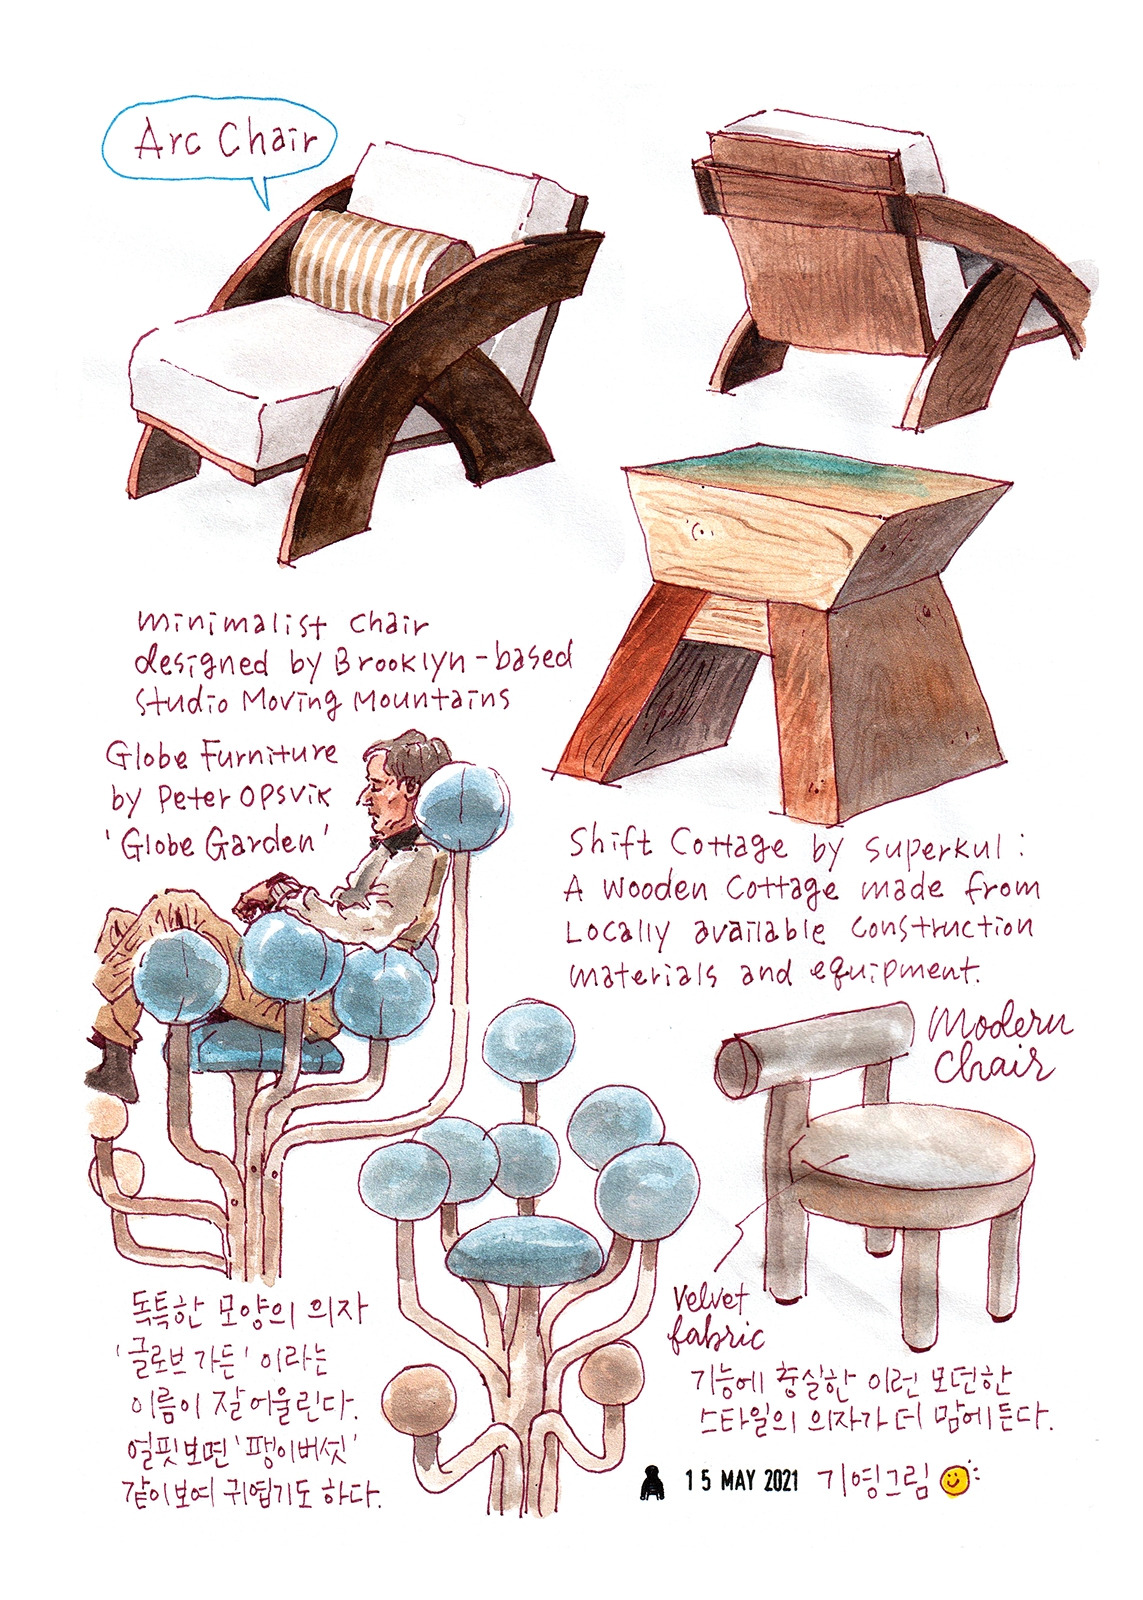 Arc Chair
minimalist chair
designed by Brooklyn-based
studio Moving Mountains
Globe Furniture
by Peter OPSVIK
'Globe Garden'
Shift Cottage by Superkul :
A Wooden Cottage made from
Locally available construction
materials and equipment.
Modern
Chair
Velvet
fabric
독특한 모양의 의자
'글로브 가든' 이라는
이름이 잘 어울린다.
얼핏보면 '팽이버섯'
같이보여 귀엽기도 하다.
기능에 충실한 이런 모던한
스타일의 의자가 더 맘에든다.
15 MAY 2021 기영그림